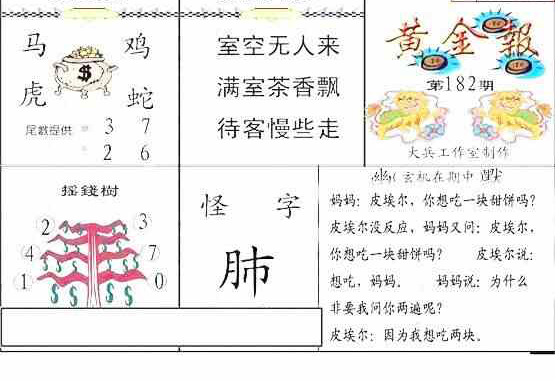 马 鸡
$
虎 蛇
尾數提供 3 7
2 6
室空无人来
满室茶香飘
待客慢些走
黄金報
第182期
大兵工作室制作
摇錢樹
2 3
4 7
1 0
怪 字
肺
幽(玄机在期中)默
妈妈：皮埃尔，你想吃一块甜饼吗？
皮埃尔没反应，妈妈又问：皮埃尔，
你想吃一块甜饼吗？ 皮埃尔说：
想吃，妈妈。 妈妈说：为什么
非要我问你两遍呢？
皮埃尔：因为我想吃两块。